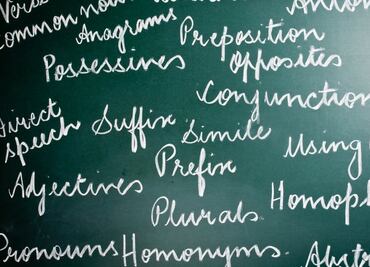 Verbs
common noun
Anagrams Preposition
Possessives opposites
Conjunction
Direct speech Suffix Simile
Using
Prefix
Adjectives Homoph
Plurals
Pronouns Homonyms. Abstr